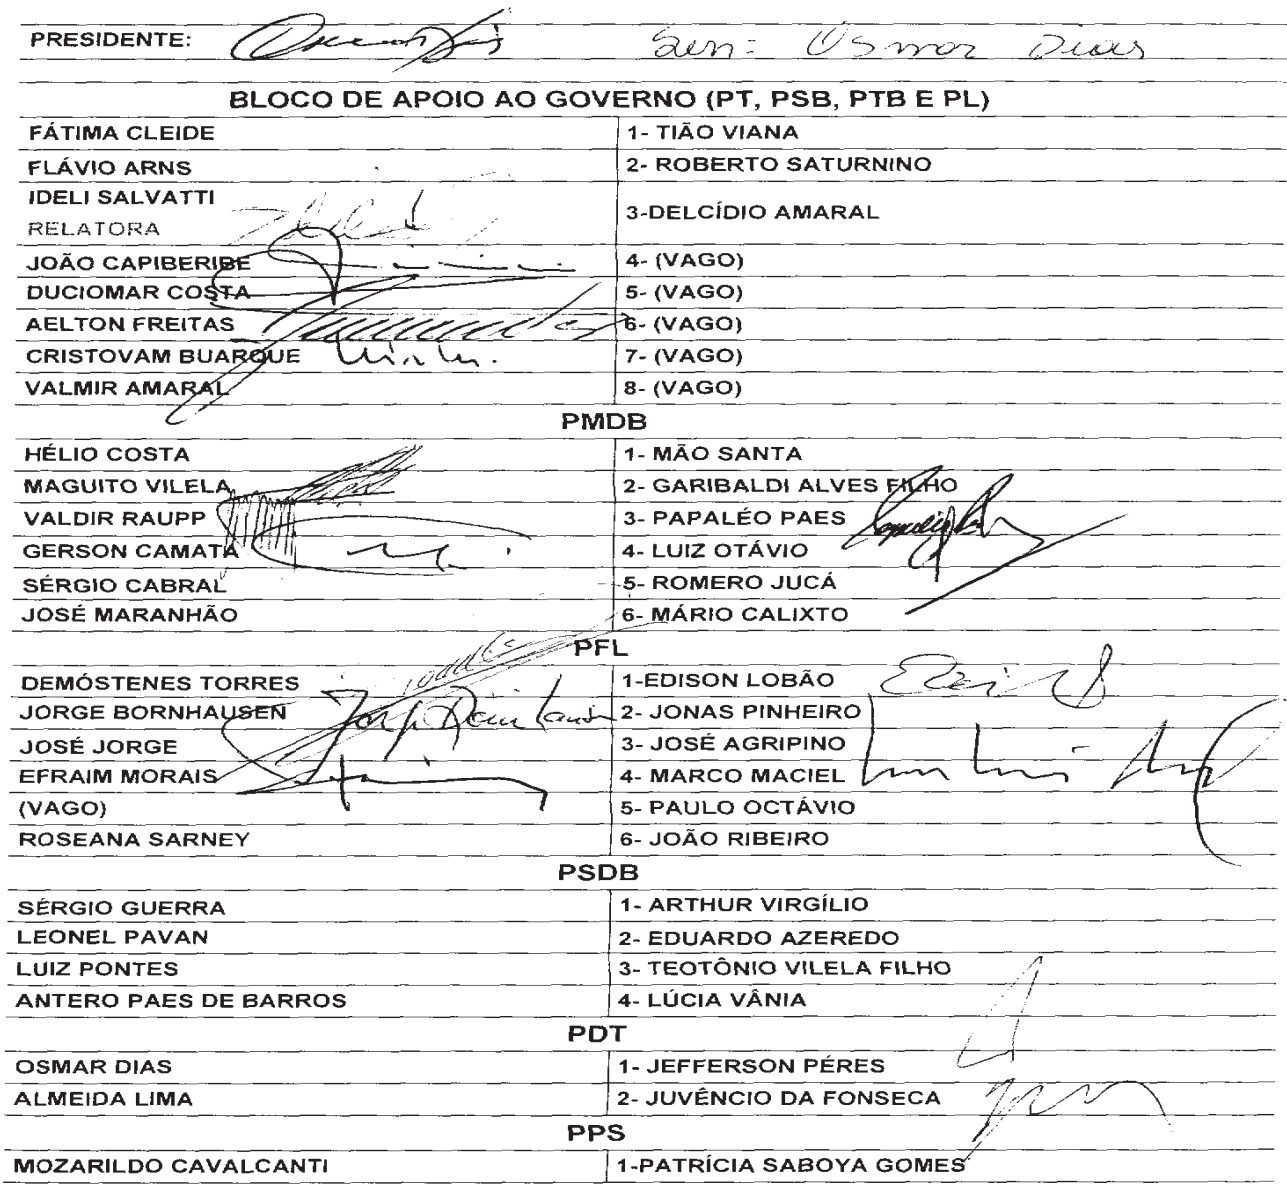 PRESIDENTE: Sen: Osmar Dias
BLOCO DE APOIO AO GOVERNO (PT, PSB, PTB E PL)
FÁTIMA CLEIDE 1- TIÃO VIANA
FLÁVIO ARNS 2- ROBERTO SATURNINO
IDELI SALVATTI
RELATORA 3-DELCÍDIO AMARAL
JOÃO CAPIBERIBE 4- (VAGO)
DUCIOMAR COSTA 5- (VAGO)
AELTON FREITAS 6- (VAGO)
CRISTOVAM BUARQUE 7- (VAGO)
VALMIR AMARAL 8- (VAGO)
PMDB
HÉLIO COSTA 1- MÃO SANTA
MAGUITO VILELA 2- GARIBALDI ALVES FILHO
VALDIR RAUPP 3- PAPALÉO PAES
GERSON CAMATA 4- LUIZ OTÁVIO
SÉRGIO CABRAL 5- ROMERO JUCÁ
JOSÉ MARANHÃO 6- MÁRIO CALIXTO
PFL
DEMÓSTENES TORRES 1-EDISON LOBÃO
JORGE BORNHAUSEN 2- JONAS PINHEIRO
JOSÉ JORGE 3- JOSÉ AGRIPINO
EFRAIM MORAIS 4- MARCO MACIEL
(VAGO) 5- PAULO OCTÁVIO
ROSEANA SARNEY 6- JOÃO RIBEIRO
PSDB
SÉRGIO GUERRA 1- ARTHUR VIRGÍLIO
LEONEL PAVAN 2- EDUARDO AZEREDO
LUIZ PONTES 3- TEOTÔNIO VILELA FILHO
ANTERO PAES DE BARROS 4- LÚCIA VÂNIA
PDT
OSMAR DIAS 1- JEFFERSON PÉRES
ALMEIDA LIMA 2- JUVÊNCIO DA FONSECA
PPS
MOZARILDO CAVALCANTI 1-PATRÍCIA SABOYA GOMES